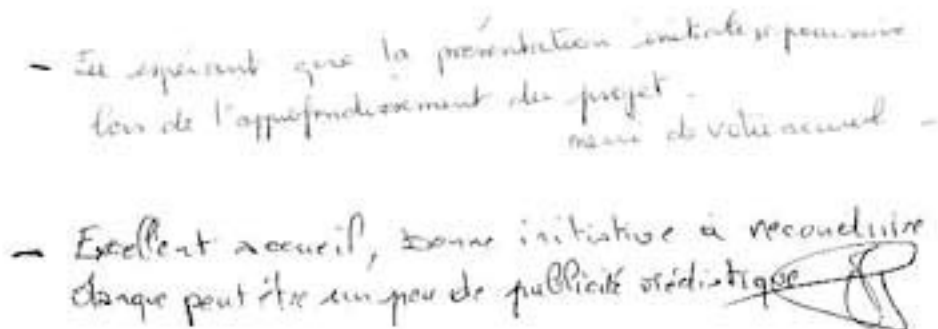 - En espérant que la présentation initiale se poursuive
lors de l'approfondissement du projet.
merci de votre accueil -
- Excellent accueil, bonne initiative à reconduire
Manque peut être un peu de publicité médiatique